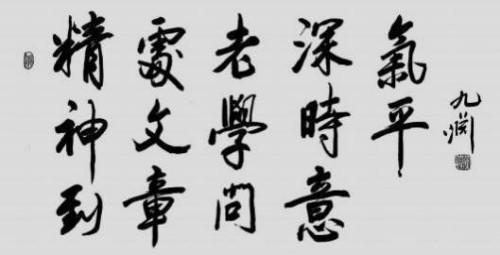 精神到
處文章
老學問
深時意
氣平
九